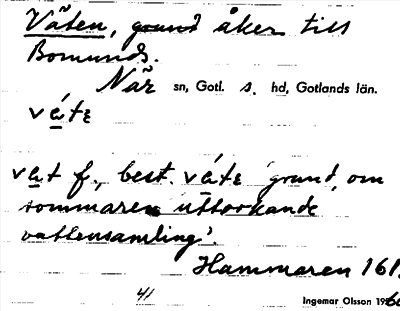 Väten, grund åker till
Bomunds.
När sn, Gotl. s. hd, Gotlands län.
váte
vat f., best. váte 'grund, om
sommaren uttorkande
vattensamling'.
Hammaren 161.
41 Ingemar Olsson